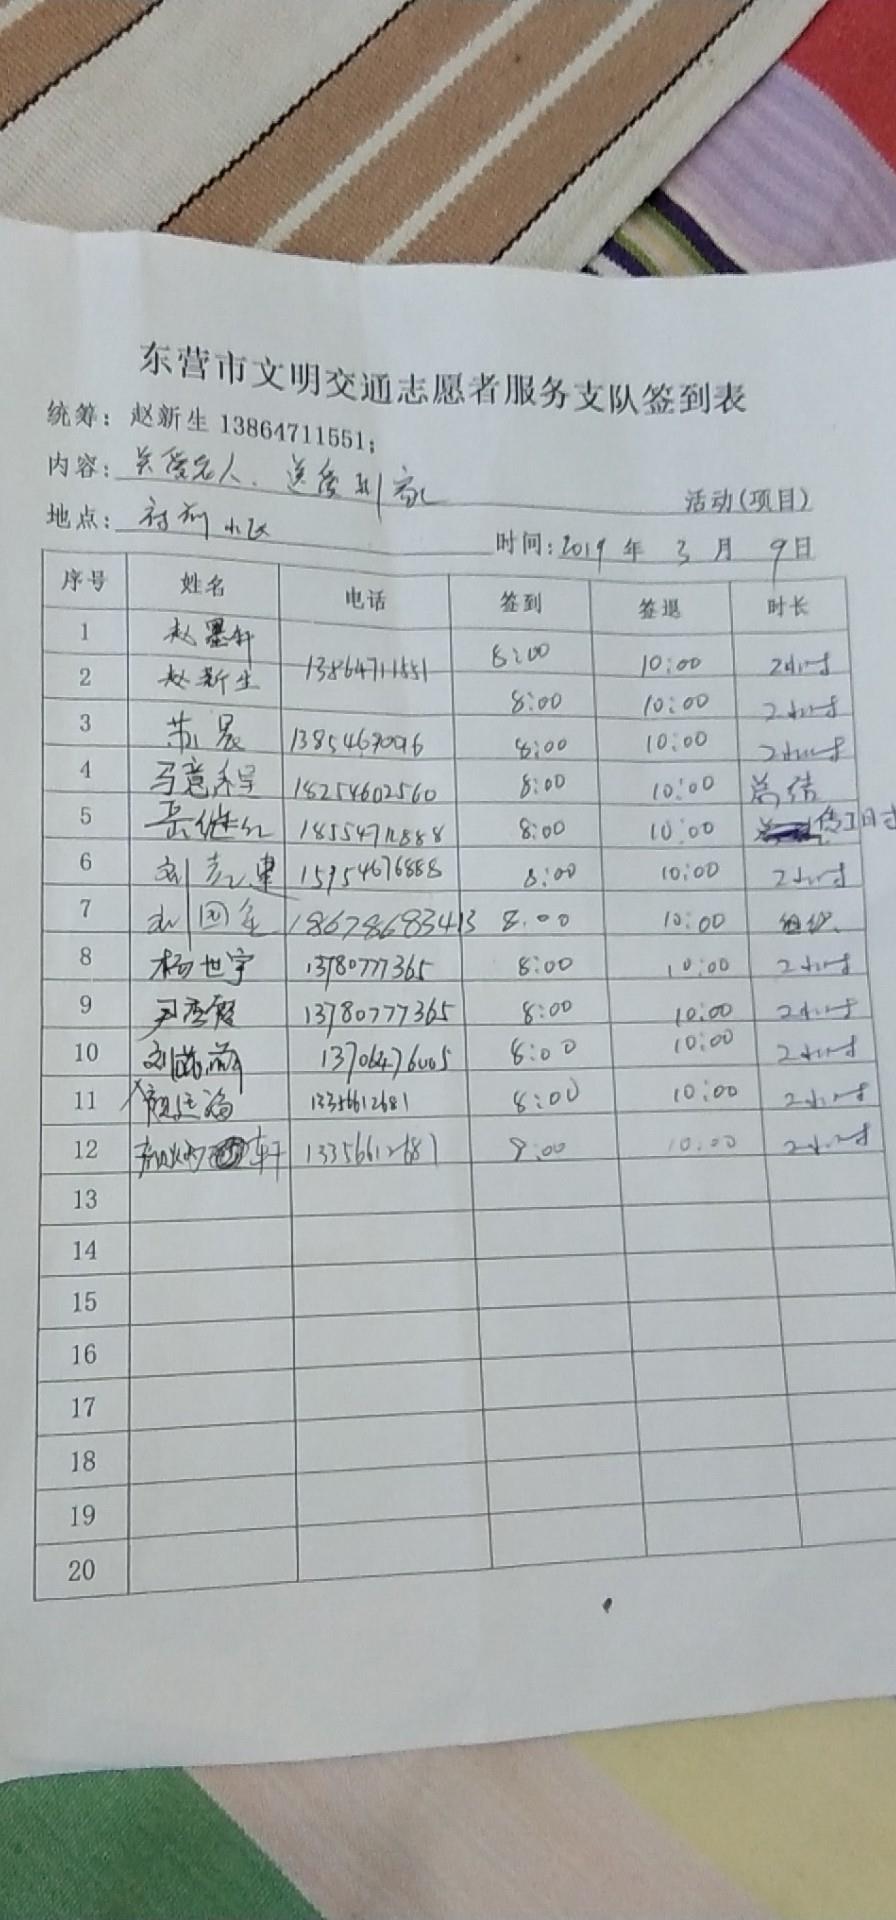 东营市文明交通志愿者服务支队签到表
统筹：赵新生 13864711551；
内容：关爱老人、送爱到家 活动(项目)
地点：小区 时间：2019 年 3 月 9日
序号 姓名 电话 签到 签退 时长
1 赵墨轩 8:00 10:00 2小时
2 赵新生 13864711551 8:00 10:00 2小时
3 苏晨 8:00 10:00 2小时
4 马意程 18254602560 8:00 10:00 总结
5 岳继红 8:00 10:00
6 刘 15954676888 8:00 10:00 2小时
7 刘国 18678683413 8:00 10:00 组织
8 杨世宇 13780777365 8:00 10:00 2小时
9 尹秀霞 13780777365 8:00 10:00 2小时
10 刘 13706476005 8:00 10:00 2小时
11 13356612681 8:00 10:00 2小时
12 轩 13356612681 8:00 10:00 2小时
13
14
15
16
17
18
19
20